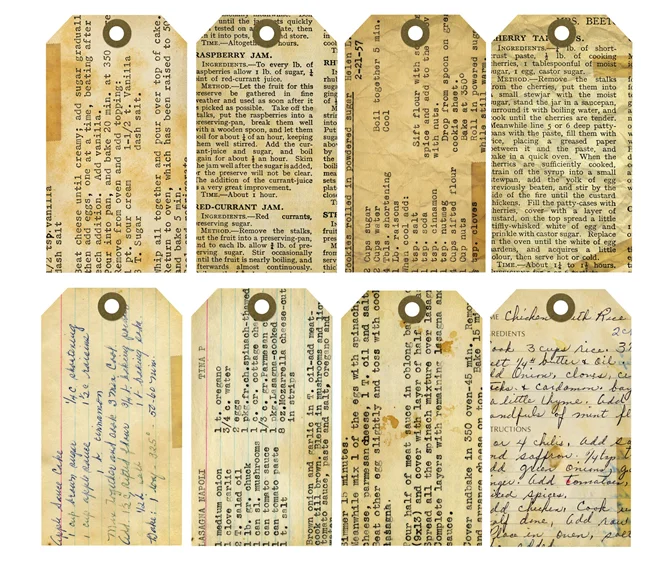 1/2 tsp.vanilla
dash salt
Beat cheese until creamy; add sugar graduall
then add eggs, one at a time, beating after
each addition. Add vanilla.
Pour into pan, and bake 20 min. at 375
Remove from oven and add topping:
1 pt. sour cream 1/2 t. vanilla
6 T. Sugar dash salt.
Whip all together and pour over top of cake.
Return to oven which has been raised to 50
and bake 5 min.
until the quickly
tested on a
then in into pots, and store.
TIME.—Altogether hours.
RASPBERRY JAM.
INGREDIENTS.—To every lb. of
raspberries allow 1 lb. of sugar, ¼
pint of red-currant juice.
METHOD.—Let the fruit for this
preserve be gathered in fine
weather and used as soon after it
is picked as possible. Take off the
stalks, put the raspberries into a
preserving-pan, break them well
with a wooden spoon, and let them
boil for about ¼ of an hour, keeping
them well stirred. Add the cur-
rant-juice and sugar, and boil
again for about ½ an hour. Skim
the jam well after the sugar is added,
or the preserve will not be clear.
The addition of the currant-juice
is a very great improvement.
TIME.—About 1 hour.
RED-CURRANT JAM.
INGREDIENTS.—Red currants,
preserving sugar.
METHOD.—Remove the stalks,
put the fruit into a preserving-pan,
and to each lb. allow ¾ lb. of pre-
serving sugar. Stir occasionally
until the fruit is nearly boiling, and
afterwards almost continuously.
cookies rolled in powdered sugar helen
2-21-57
2 cups sugar
2 cups water
4 Tbls. shortening
1 Lb. raisons
Boil together 5 min.
Cool
When cool add:
1 tsp. salt
1 tsp. soda
2 tsp. cinnamon
1 tsp. nutmeg
4 Cups sifted flour
1 tsp. cloves
Sift flour with
spice and add to the
with nuts.
Drop from spoon on gre
cookie sheet.
Bake at 350o
Roll in powered sugar
while still warm.
MRS. BEET
CHERRY TA S.
INGREDIENTS.—¾ lb. of short-
crust paste, ¾ lb. of cooking
cherries, 1 tablespoonful of moist
sugar, 1 egg, castor sugar.
METHOD.—Remove the stalks
from the cherries, put them into
a small stewjar with the moist
sugar, stand the jar in a saucepan,
surround it with boiling water, and
cook until the cherries are tender.
Meanwhile line 5 or 6 deep patty-
pans with the paste, fill them with
rice, placing a greased paper
between it and the paste, and
bake in a quick oven. When the
cherries are sufficiently cooked,
strain off the syrup into a small
stewpan, add the yolk of egg
previously beaten, and stir by the
side of the fire until the custard
thickens. Fill the patty-cases with
cherries, cover with a layer of
custard, on the top spread a little
stiffly-whisked white of egg and
sprinkle with castor sugar. Replace
in the oven until the white of egg
hardens, and acquires a little
colour, then serve hot or cold.
TIME.—About 1¼ to 1½ hours.
Apple Sauce Cake
1 cup brown sugar ½ c shortening
1 cup apple sauce 1½ c raisins
cinnamon
Mix together and cook 3 min. Cool
LASAGNA NAPOLI TINA P
1 medium onion
1 clove garlic
2 T. salad oil
1 lb. gr. chuck
1 can sl. mushrooms
1 can tomato sauce
1 can tomato paste
2 t. salt
1 t. oregano
3/4 c. water
2 eggs
1 pkg.fr.ch.spinach-thawed
1 c. cr. cottage che
1/3 c. gr.Parmesan
1 pkg.Lasagna-cooked
8 oz.Mozzarella cheese-cut
in strips
Brown onion and garlic in oil;add meat-
cook till brown. Blend in mushrooms and liq
tomato sauce, paste and salt, oregano and
Simmer 15 minutes.
Meanwhile mix 1 of the eggs with spinach,
cheese, parmesan cheese, 1 T. oil and salt
Beat other egg slightly and toss with cook
Pour half of meat sauce in oblong bak
(9x13) and cover with layer of half
Spread all the spinach mixture over lasagn
Complete layers with remaining lasagna and
sauce.
Cover and bake in 350 oven-45 min. Rem
and arrange cheese on top. Bake 15 m
ME Chicken with Rice
REDIENTS
ook 3 cups rice.
butter & oil
dd Onion, cloves,
cks. & cardamon, bay
a little thyme. Add
andfuls of mint
TRUCTIONS
or 4 chilis, add
tsp
dd green onions
nger. Add tomatoes,
ked spices.
dd chicken, Cook
add
Place in oven,